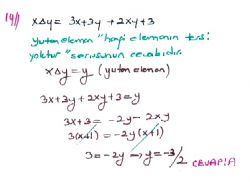 19) x∆y = 3x+3y +2xy+3
yutan eleman "hangi elemanın tersi
yoktur" sorusunun cevabıdır.
x∆y = y (yutan eleman)
3x+3y+2xy+3=y
3x+3 = -2y - 2xy
3(x+1) = -2y(x+1)
3=-2y → y=-3/2 CEVAP:A